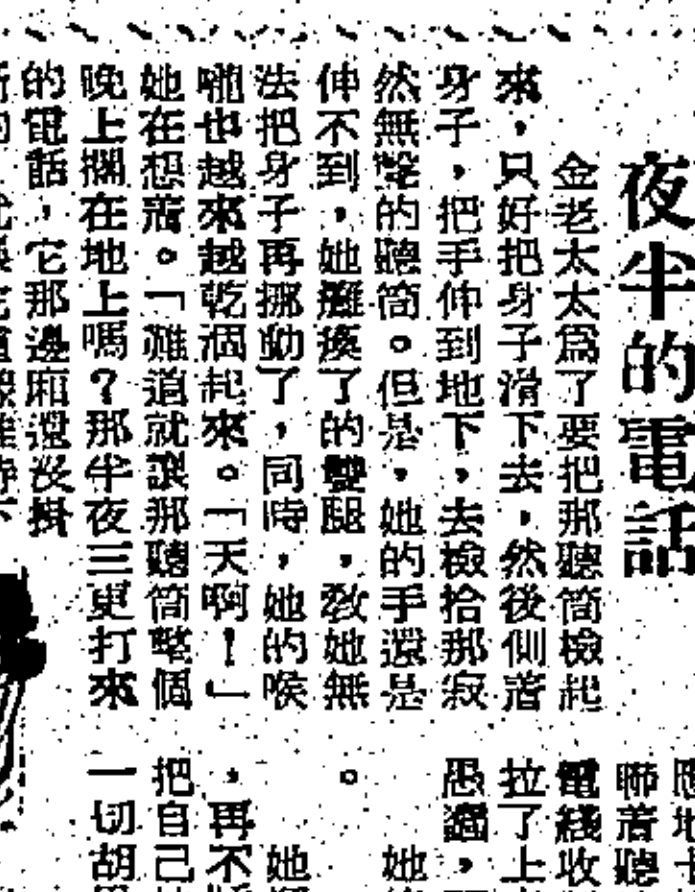 夜半的電話
金老太太為了要把那聽筒檢起
來，只好把身子滑下去，然後側著
身子，把手伸到地下，去檢拾那寂
然無聲的聽筒。但是，她的手還是
伸不到，她癱瘓了的雙腿，敎她無
法把身子再挪動了，同時，她的喉
嚨也越來越乾涸起來。「天啊！」
她在想著。「難道就讓那聽筒整個
晚上擱在地上嗎？那半夜三更打來
的電話，它那邊廂還沒掛
聯著聽
電綫收
拉了上
愚
她
。
她
，再不
把自己
一切胡